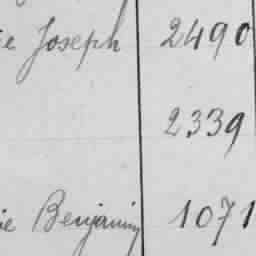 ie Joseph 2490
2339
ie Benjamin 1071